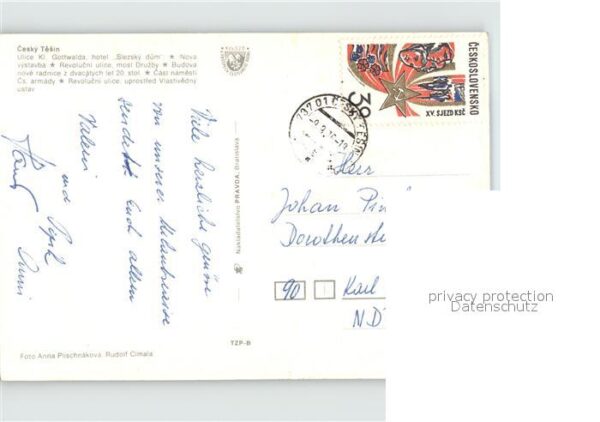 Český Těšín
Ulice Kl. Gottwalda, hotel „Slezský dům“ ★ Nová
výstavba ★ Revoluční ulice, most Družby ★ Budova
nové radnice z dvacátých let 20. stol. ★ Část náměstí
Čs. armády ★ Revoluční ulice; uprostřed Vlastivědný
ústav
Viele herzliche Grüsse
von unserer Urlaubsreise
sendet Euch allen
Valeri
und
Nakladatelstvo PRAVDA, Bratislava
TZP-B
Foto Anna Pilschnáková, Rudolf Cimala
ČESKOSLOVENSKO
XV. SJEZD KSČ
30
737 01 ČESKÝ TĚŠÍN
Herr
Johan
90
Karl
privacy protection
Datenschutz